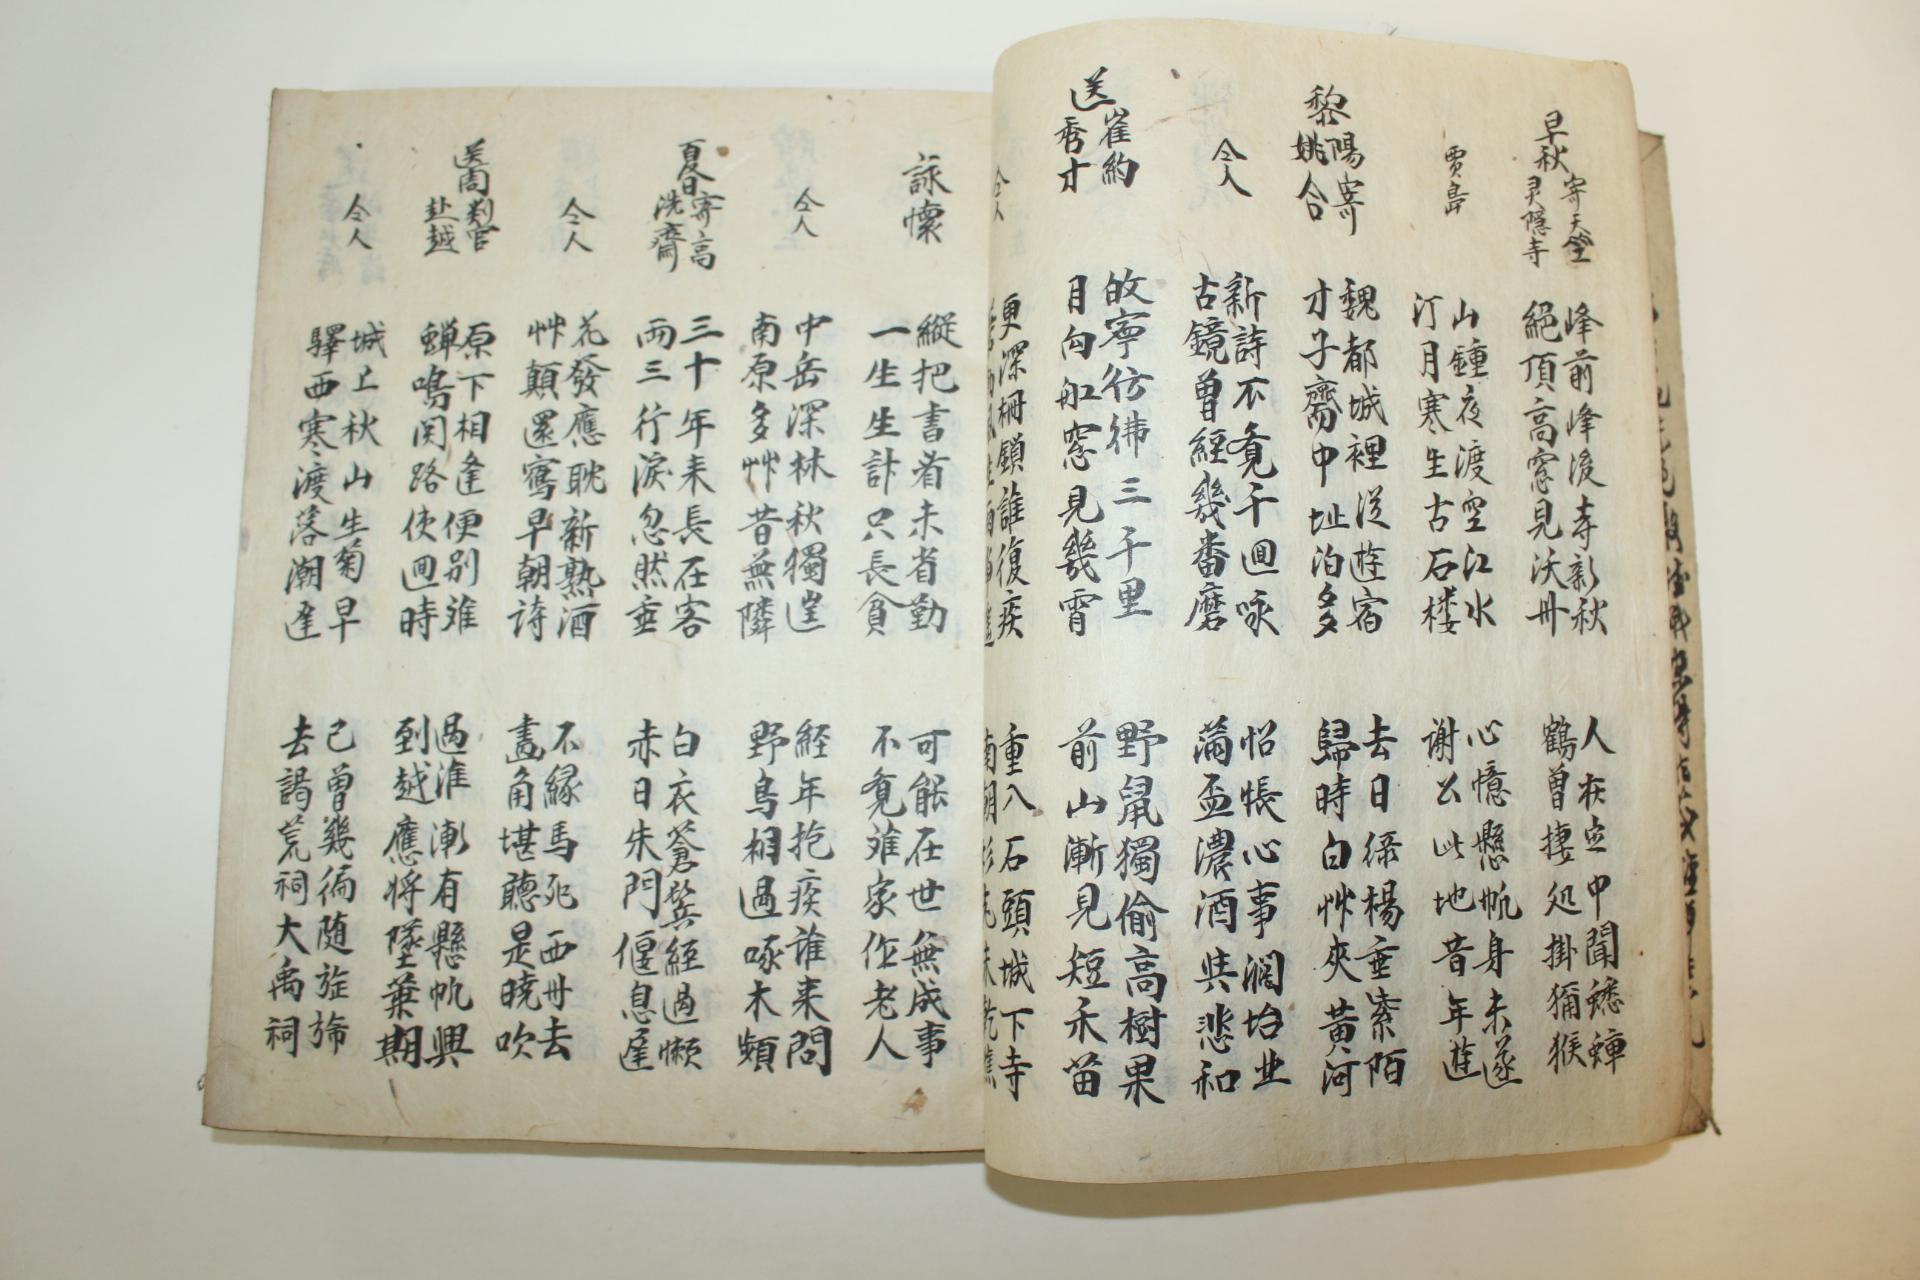 早秋
寄天竺
灵隐寺
峰前峰後寺新秋
絕頂高窓見沃州
人在定中聞蟋蟀
鶴曾捿処掛獼猴
賈島
山鍾夜渡空江水
汀月寒生古石楼
心憶懸帆身未遂
謝公此地昔年遊
黎陽寄
姚合
魏都城裡従遊宿
才子齋中址泊多
去日綠楊垂紫陌
歸時白艸夾黃河
仝人
新詩不覓千迴咏
古鏡曾經幾番磨
怊悵心事
滿盃濃酒 悲和
送
崔約
秀才
彷彿三千里
月向舡窓見幾霄
野鼠獨偷高樹果
前山漸見短禾苗
仝人
更深柵鎖誰復疾
重八石頭城下寺
詠懷
縱把書看未省勤
一生生計只長貧
可能在世無成事
不覓難家作老人
仝人
中岳深林秋獨
南原多艸昔無隣
經年抱疾谁来問
野鳥相過啄木頻
夏日
寄高
洗齋
三十年来長在客
兩三行淚忽然垂
白衣蒼鬢經過懶
赤日朱門偃息遲
仝人
花發應耽新熟酒
艸顛還寫早朝詩
不緣馬死西州去
畵角堪聽是曉吹
送周
判官
赴越
原下相逢便别難
蟬鳴関路使迴時
過淮漸有懸帆興
到越應將墜葉期
仝人
城上秋山生菊早
驛西寒渡落潮遲
已曾幾徧随旌旆
去謁荒祠大禹祠